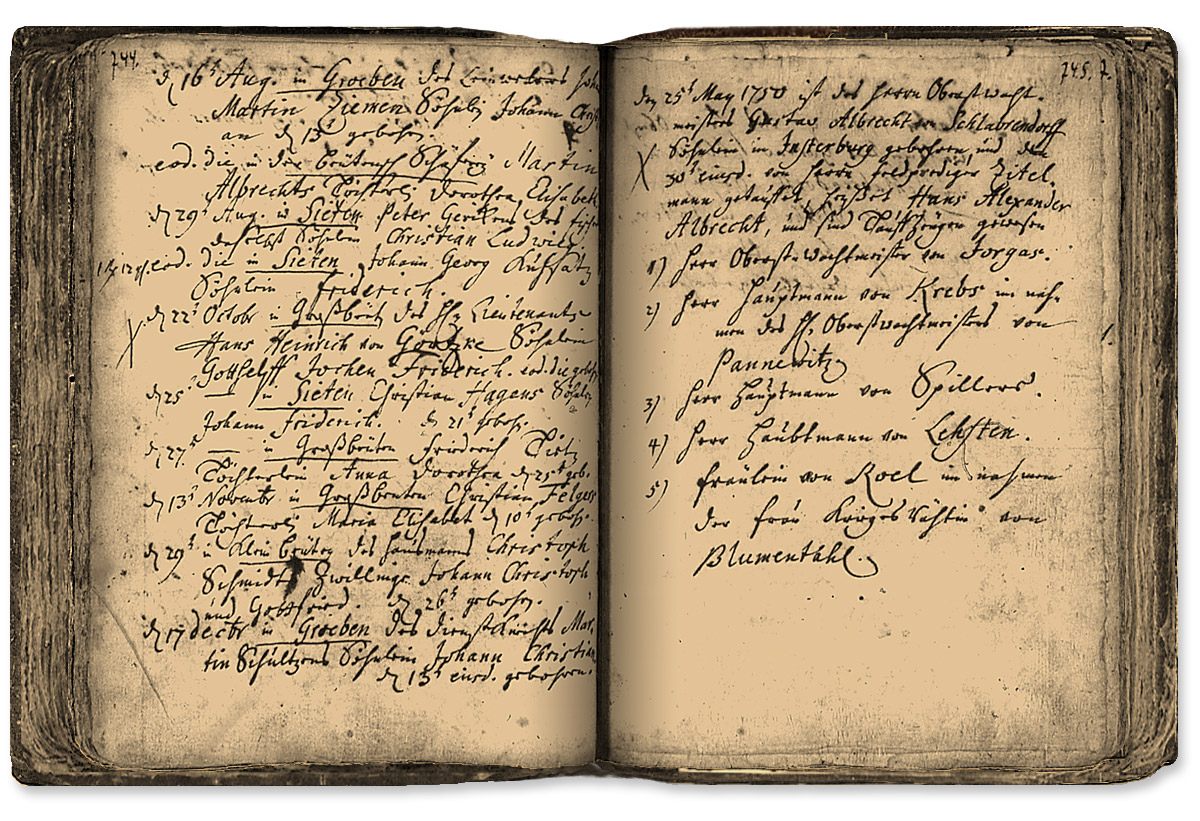 744.
d 16t Aug. in Groeben des Leinwebers Joh
Martin Ziemen Söhnlein Johann Chri
an d 13t gebohren.
eod. die in der beutensch Schäferey Martin
Albrechts Töchterlein Dorothea Elisabeth
d 29t Aug. in Sieten Peter Gerickens des
daselbst Söhnlein Christian Ludwig
eod. die in Sieten Johann Georg Kuhsatz
Söhnlein Friderich.
d 22t Octobr in Großbeut des H. Lieutenants
Hans Heinrich von Goertzke Söhnlein
Gotthelff Jochen Friderich. eod. die gebohr
d 25t — in Sieten Christian Hagens Söhnlein
Johann Friderich. d 21t gebohr.
d 27t — in Großbeuten Friederich Tietz
Töchterlein Anna Dorothea d 25t geb.
d 13t Novembr in Großbeuten Christian Felgens
Töchterlein Maria Elisabet d 10t gebohr.
d 29t in Kleinbeuten des Hausmanns Christoph
Schmidt Zwillinge Johann Christoph
und Gottfried. d 26t gebohren.
d 17 Decbr in Groeben des Dienstknechts Mar-
tin Schultzens Söhnlein Johann Christian
d 13t eiusd. gebohren.
745. 7.
den 25t May 1750 ist des Herrn Oberstwacht-
meisters Gustav Albrecht v. Schlabrendorff
Söhnlein in Insterburg gebohren und den
30t eiusd. von Herrn Feldprediger Zitel-
mann getauffet, heisset Hans Alexander
Albrecht, und sind Tauffzeugen gewesen
1) Herr Oberst-Wachtmeister von Jorgas.
2) Herr Hauptmann von Krebs im nah-
men des H. Oberstwachtmeisters von
Pannewitz
3) Herr Hauptmann von Spillers.
4) Herr Haubtmann von Lehsten.
5) Fräulein von Roel im nahmen
der Frau Krieges Räthin von
Blumenthal.